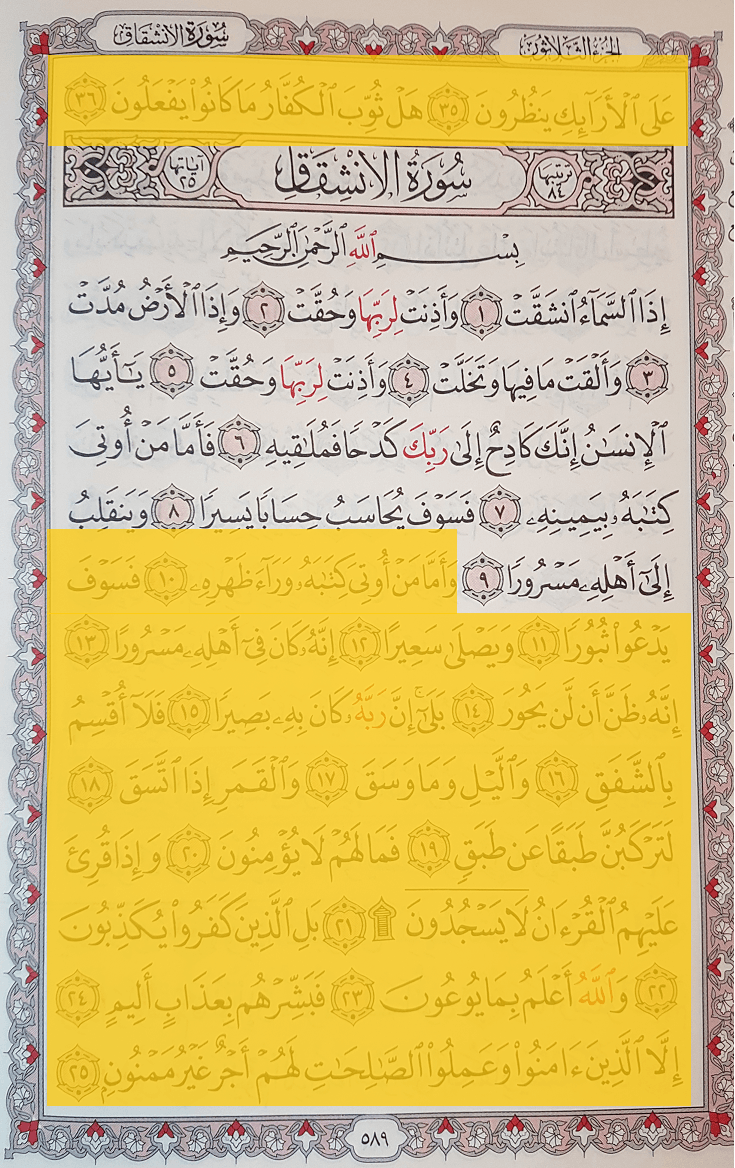 سُورَةُ الِانشِقَاقِ الجُزْءُ الثَّلَاثُونَ
عَلَى ٱلْأَرَآئِكِ يَنظُرُونَ ٣٥ هَلْ ثُوِّبَ ٱلْكُفَّارُ مَا كَانُوا۟ يَفْعَلُونَ ٣٦
ترتيبها ٨٤ سُورَةُ الِانشِقَاقِ آياتها ٢٥
بِسْمِ ٱللَّهِ ٱلرَّحْمَٰنِ ٱلرَّحِيمِ
إِذَا ٱلسَّمَآءُ ٱنشَقَّتْ ١ وَأَذِنَتْ لِرَبِّهَا وَحُقَّتْ ٢ وَإِذَا ٱلْأَرْضُ مُدَّتْ
٣ وَأَلْقَتْ مَا فِيهَا وَتَخَلَّتْ ٤ وَأَذِنَتْ لِرَبِّهَا وَحُقَّتْ ٥ يَٰٓأَيُّهَا
ٱلْإِنسَٰنُ إِنَّكَ كَادِحٌ إِلَىٰ رَبِّكَ كَدْحًا فَمُلَٰقِيهِ ٦ فَأَمَّا مَنْ أُوتِىَ
كِتَٰبَهُۥ بِيَمِينِهِۦ ٧ فَسَوْفَ يُحَاسَبُ حِسَابًا يَسِيرًا ٨ وَيَنقَلِبُ
إِلَىٰٓ أَهْلِهِۦ مَسْرُورًا ٩ وَأَمَّا مَنْ أُوتِىَ كِتَٰبَهُۥ وَرَآءَ ظَهْرِهِۦ ١٠ فَسَوْفَ
يَدْعُوا۟ ثُبُورًا ١١ وَيَصْلَىٰ سَعِيرًا ١٢ إِنَّهُۥ كَانَ فِىٓ أَهْلِهِۦ مَسْرُورًا ١٣
إِنَّهُۥ ظَنَّ أَن لَّن يَحُورَ ١٤ بَلَىٰٓ إِنَّ رَبَّهُۥ كَانَ بِهِۦ بَصِيرًا ١٥ فَلَآ أُقْسِمُ
بِٱلشَّفَقِ ١٦ وَٱلَّيْلِ وَمَا وَسَقَ ١٧ وَٱلْقَمَرِ إِذَا ٱتَّسَقَ ١٨
لَتَرْكَبُنَّ طَبَقًا عَن طَبَقٍ ١٩ فَمَا لَهُمْ لَا يُؤْمِنُونَ ٢٠ وَإِذَا قُرِئَ
عَلَيْهِمُ ٱلْقُرْءَانُ لَا يَسْجُدُونَ ۩ ٢١ بَلِ ٱلَّذِينَ كَفَرُوا۟ يُكَذِّبُونَ
٢٢ وَٱللَّهُ أَعْلَمُ بِمَا يُوعُونَ ٢٣ فَبَشِّرْهُم بِعَذَابٍ أَلِيمٍ ٢٤
إِلَّا ٱلَّذِينَ ءَامَنُوا۟ وَعَمِلُوا۟ ٱلصَّٰلِحَٰتِ لَهُمْ أَجْرٌ غَيْرُ مَمْنُونٍۭ ٢٥
٥٨٩